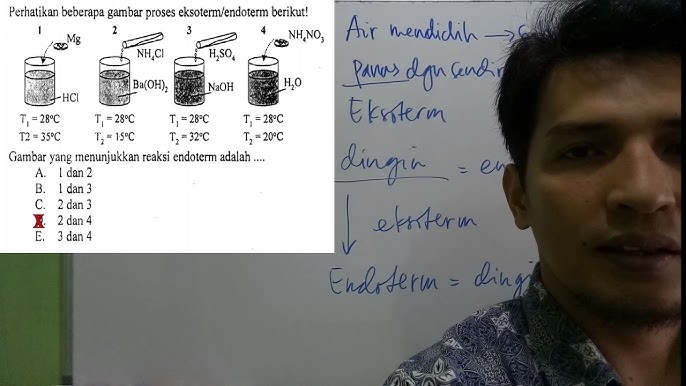 Perhatikan beberapa gambar proses eksoterm/endoterm berikut!
1 2 3 4
Mg NH₄Cl H₂SO₄ NH₄NO₃
HCl Ba(OH)₂ NaOH H₂O
T₁ = 28°C T₁ = 28°C T₁ = 28°C T₁ = 28°C
T2 = 35°C T₂ = 15°C T₂ = 32°C T₂ = 20°C
Gambar yang menunjukkan reaksi endoterm adalah ....
A. 1 dan 2
B. 1 dan 3
C. 2 dan 3
2 dan 4
E. 3 dan 4
Air mendidih →
panas dgn sendir
Eksoterm
dingin = en
↓ eksoterm
Endoterm = dingi